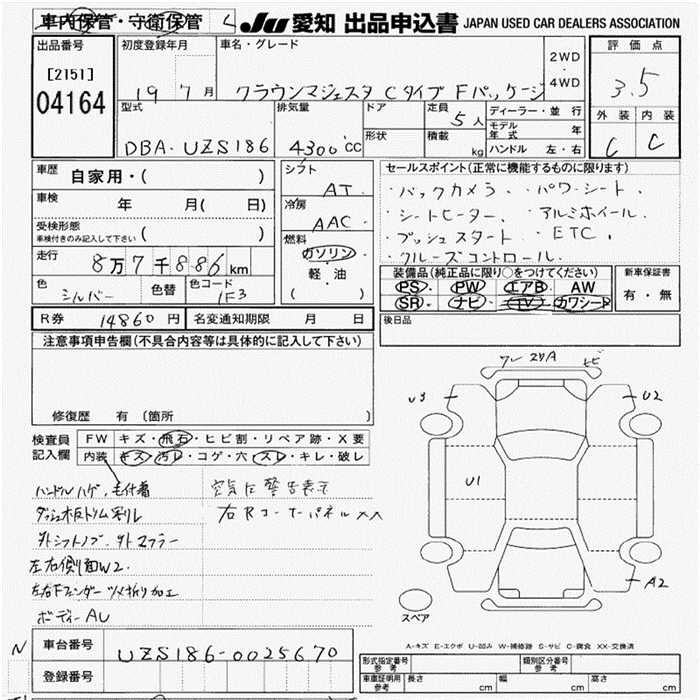 車内保管・守衛保管 JU 愛知 出品申込書 JAPAN USED CAR DEALERS ASSOCIATION
出品番号 [2151] 04164
初度登録年月 19 7 月
車名・グレード クラウンマジェスタ Cタイプ Fパッケージ
2WD・4WD
評価点 3.5
外装 C 内装 C
型式 DBA-UZS186
排気量 4300 CC
ドア 形状
定員 5人
積載 kg
ディーラー・並行
モデル年式 年
ハンドル 左・右
車歴 自家用・( )
車検 年 月( 日)
受検形態 車検付きのみ記入して下さい ( )
走行 8万7千886 km
色 シルバー 色替 色コード 1F3
シフト AT
冷房 AAC
燃料 ガソリン・軽・油 ( )
セールスポイント(正常に機能するものに限ります)
・バックカメラ、・パワーシート、
・シートヒーター、・アルミホイール、
・プッシュスタート・ETC,
・クルーズコントロール.
装備品(純正品に限り○をつけてください)
PS・PW・エアB・AW
SR・ナビ・TV・カワシート
新車保証書 有・無
R券 14860円 名変通知期限 月 日
後日品
注意事項申告欄(不具合内容等は具体的に記入して下さい)
修復歴 有 (箇所
検査員記入欄
FW キズ・飛石・ヒビ割・リペア跡・X要
内装 キズ・汚レ・コゲ・穴・スレ・キレ・破レ
ハンドルハゲ、毛付着
空気圧警告表示
ダッシュ板トリム剥レ
右Rコーナーパネルxx
外シフトノブ、外マフラー
左右側面W2.
左右Fフェンダーツメ折り加工
ボディーAU
ワレ 2リA ヒビ
U3
U2
U1
A2
スペア
A-キズ E-エクボ U-凹み W-補修跡 S-サビ C-腐食 XX-交換済
N
車台番号 UZS186-0025670
登録番号
形式指定番号 参考 類別区分番号 参考
車庫証明用 参考 長さ cm 幅 cm 高さ cm